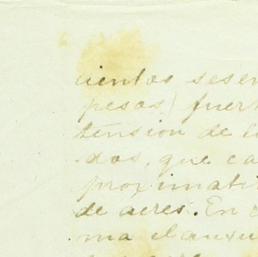 cientos sesen
pesos) fuer
tension de l
dos, que ca
proximati
de aires. En
ma